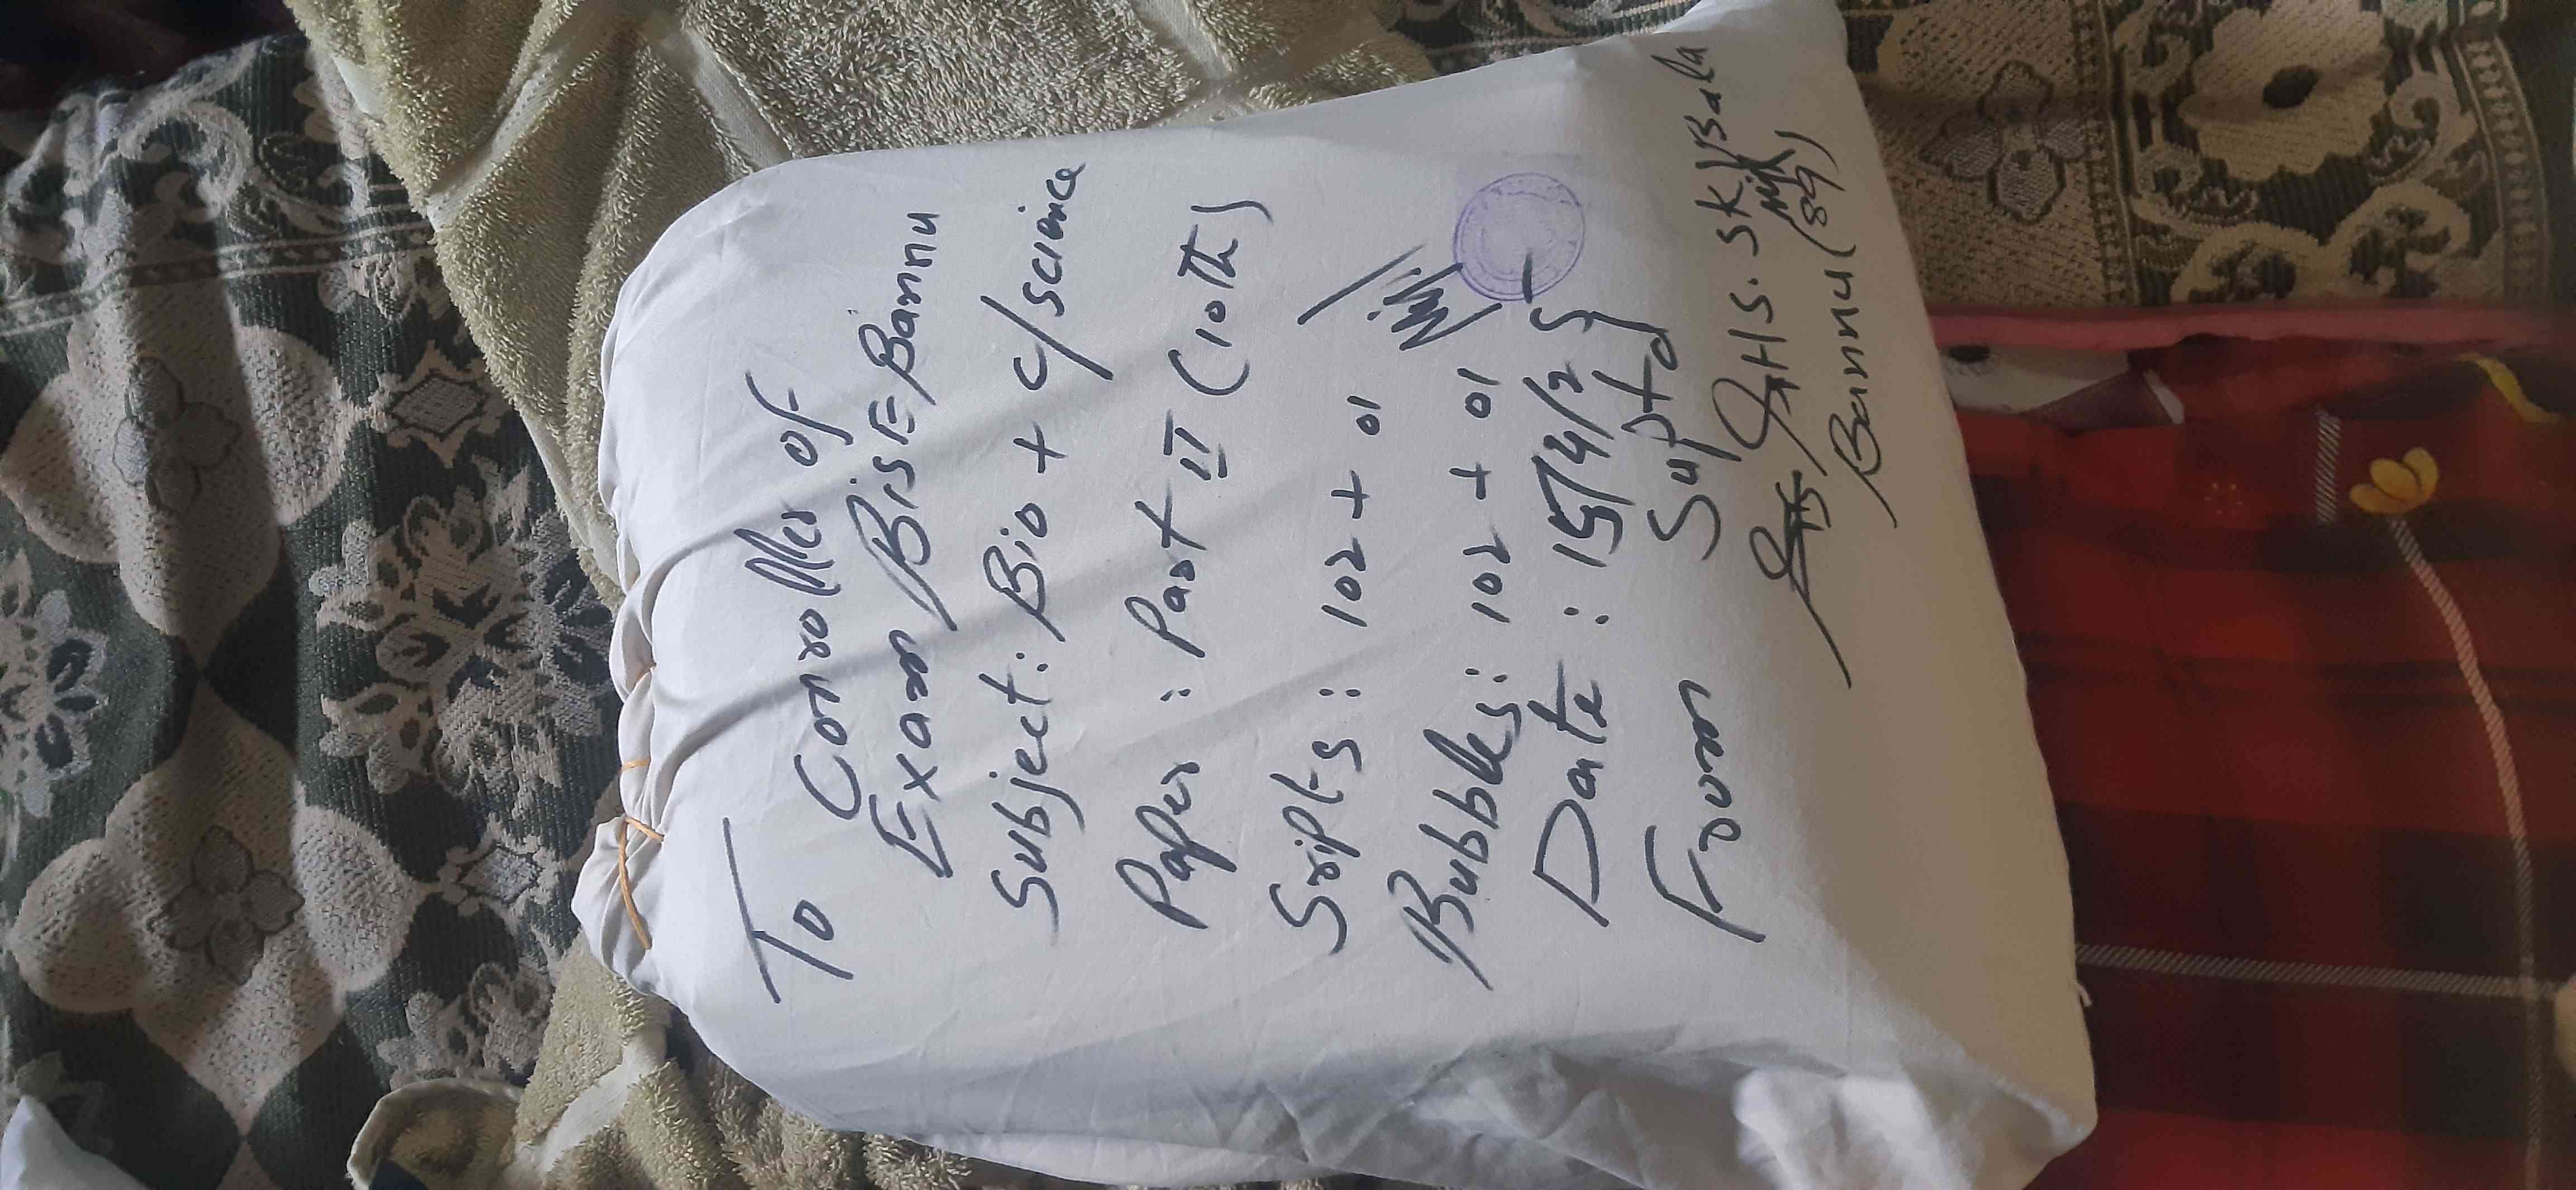 To
Conroller of
Exam BISE Bannu
Subject: Bio + C/science
Paper : Part II (10th)
Sripts : 102 + 01
Bubbles : 102 + 01
Date : 15/4/25
From Suptd
GHS. SK Bala
Bannu (89)